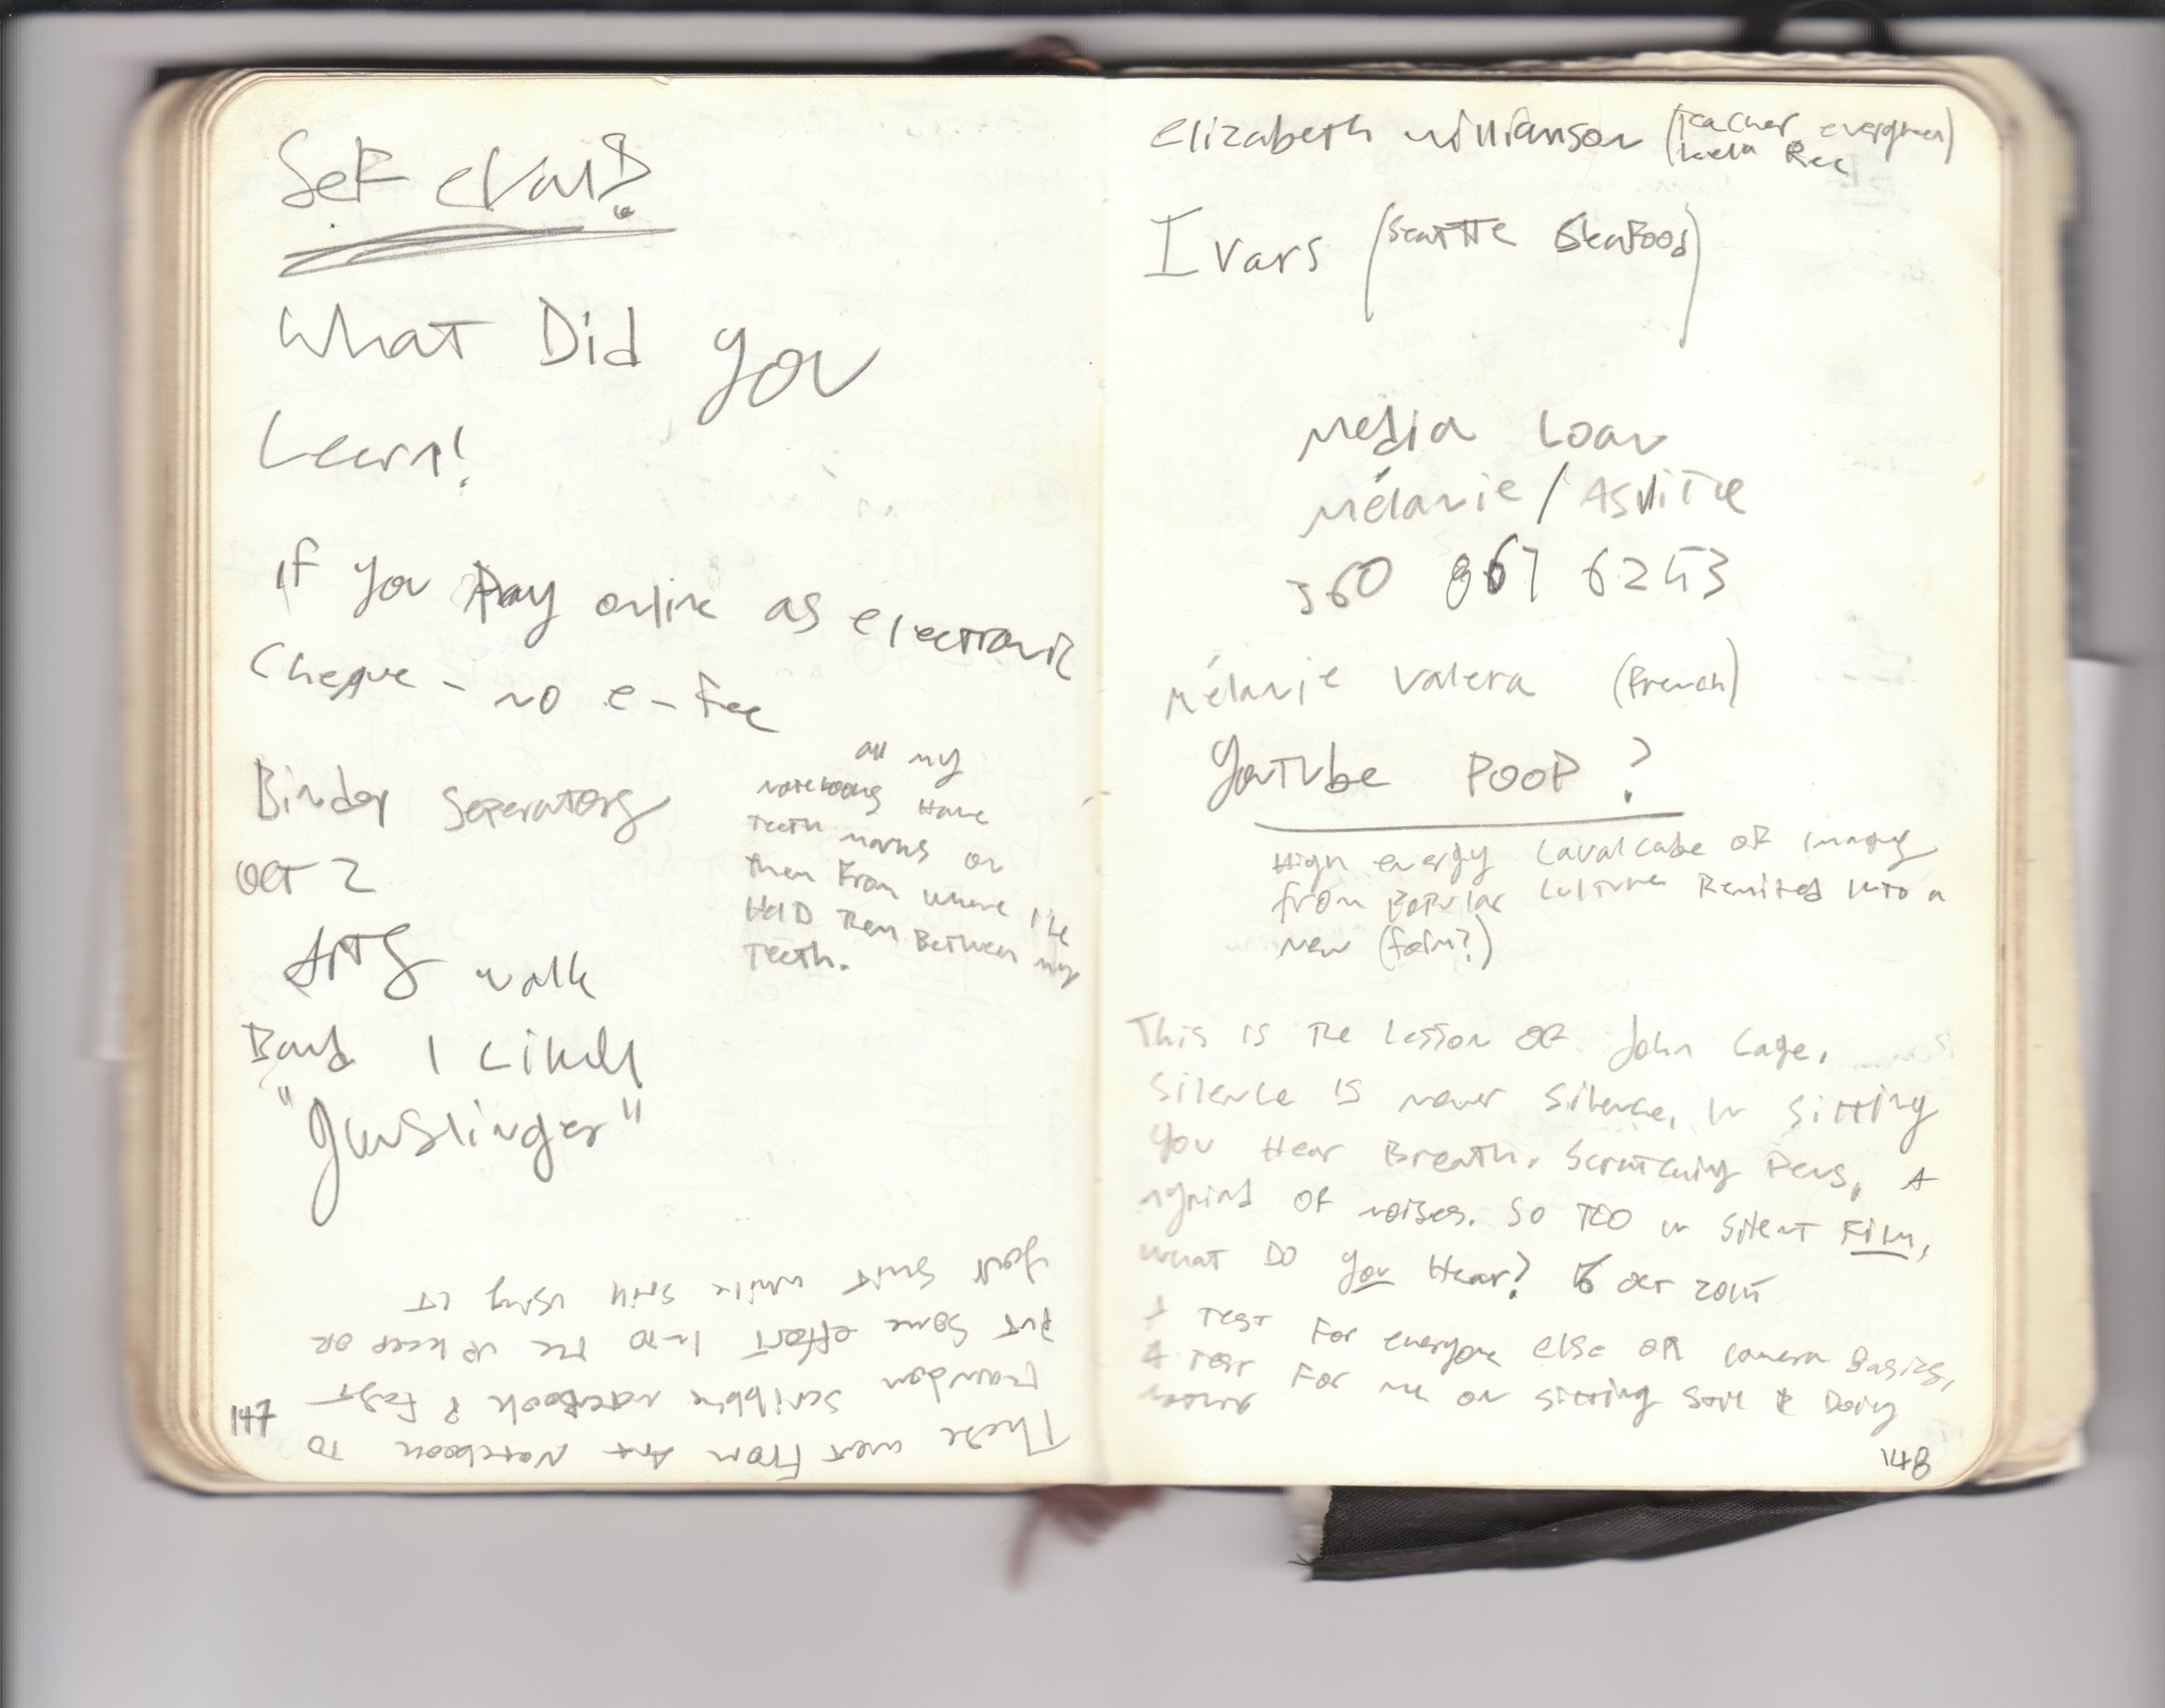 Self eval?
What Did you
Learn!
if you Pay online as electronic
Cheque - no e-fee
Binder Seperators
OCT 2
Arts walk
Band I Liked
"Gunslinger"
all my
notebooks Have
Teeth marks on
them From where I've
HelD Them Between my
Teeth.
These went From Art Notebook TO
random scribble notebook & Fast
Put some effort into the upkeep of
your shit while still using it
147
elizabeth williamson (Teacher, evergreen)
Ivars (Seattle SeaFood)
Media Loan
Mélanie /
360 867 6253
Mélanie Valera (French)
YouTube POOP?
High energy Cavalcade of images
from Popular Culture Remixed into a
new (form?)
This is the Lesson OF John Cage.
Silence is never Silence, in Sitting
you Hear Breath, Scratching Pens, A
myriad of noises. So TOO in Silent Film,
what DO you Hear? 6 Oct 2015
A Test For everyone else on camera Basics,
A Test For me on sitting Still & Doing
148